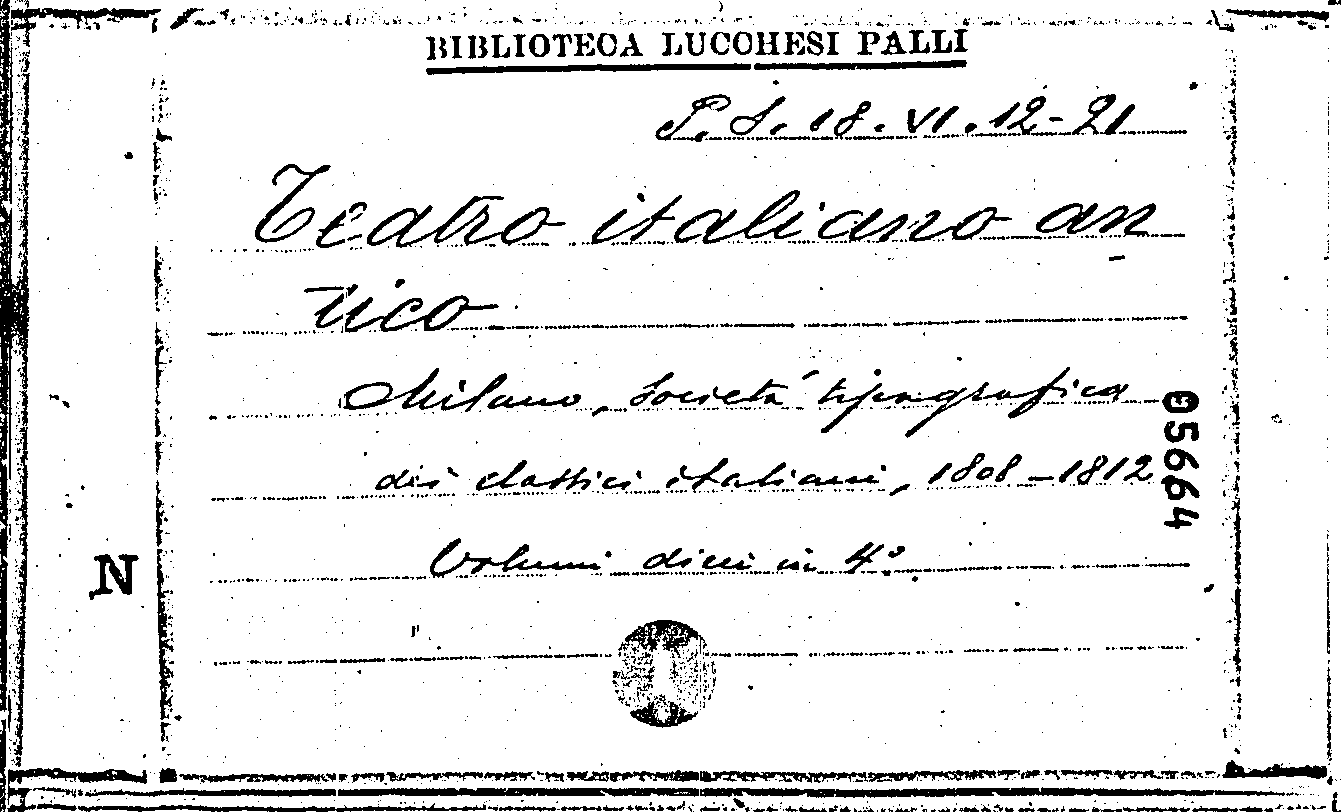 BIBLIOTECA LUCCHESI PALLI
P. S. 18. VI. 12-21
Teatro italiano an
tico
Milano, Società tipografica
dei classici italiani, 1808-1812
Volumi dieci in 4º.
05664
N